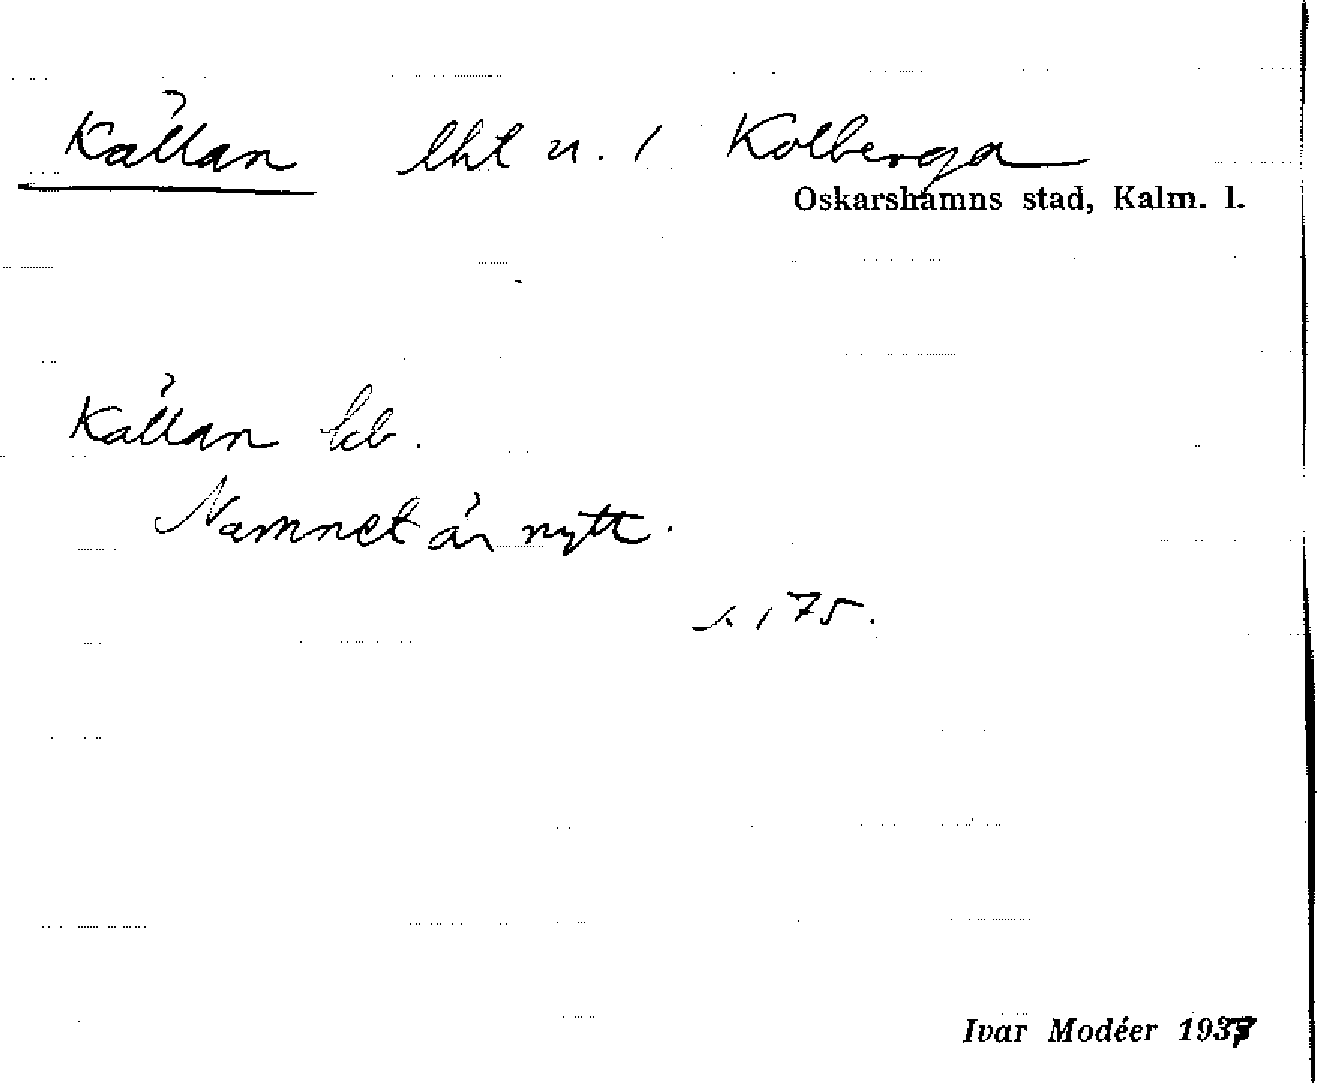 Källan lht u. / Kolberga
Oskarshamns stad, Kalm. l.
Källan
Namnet är nytt.
s. 175.
Ivar Modéer 1937